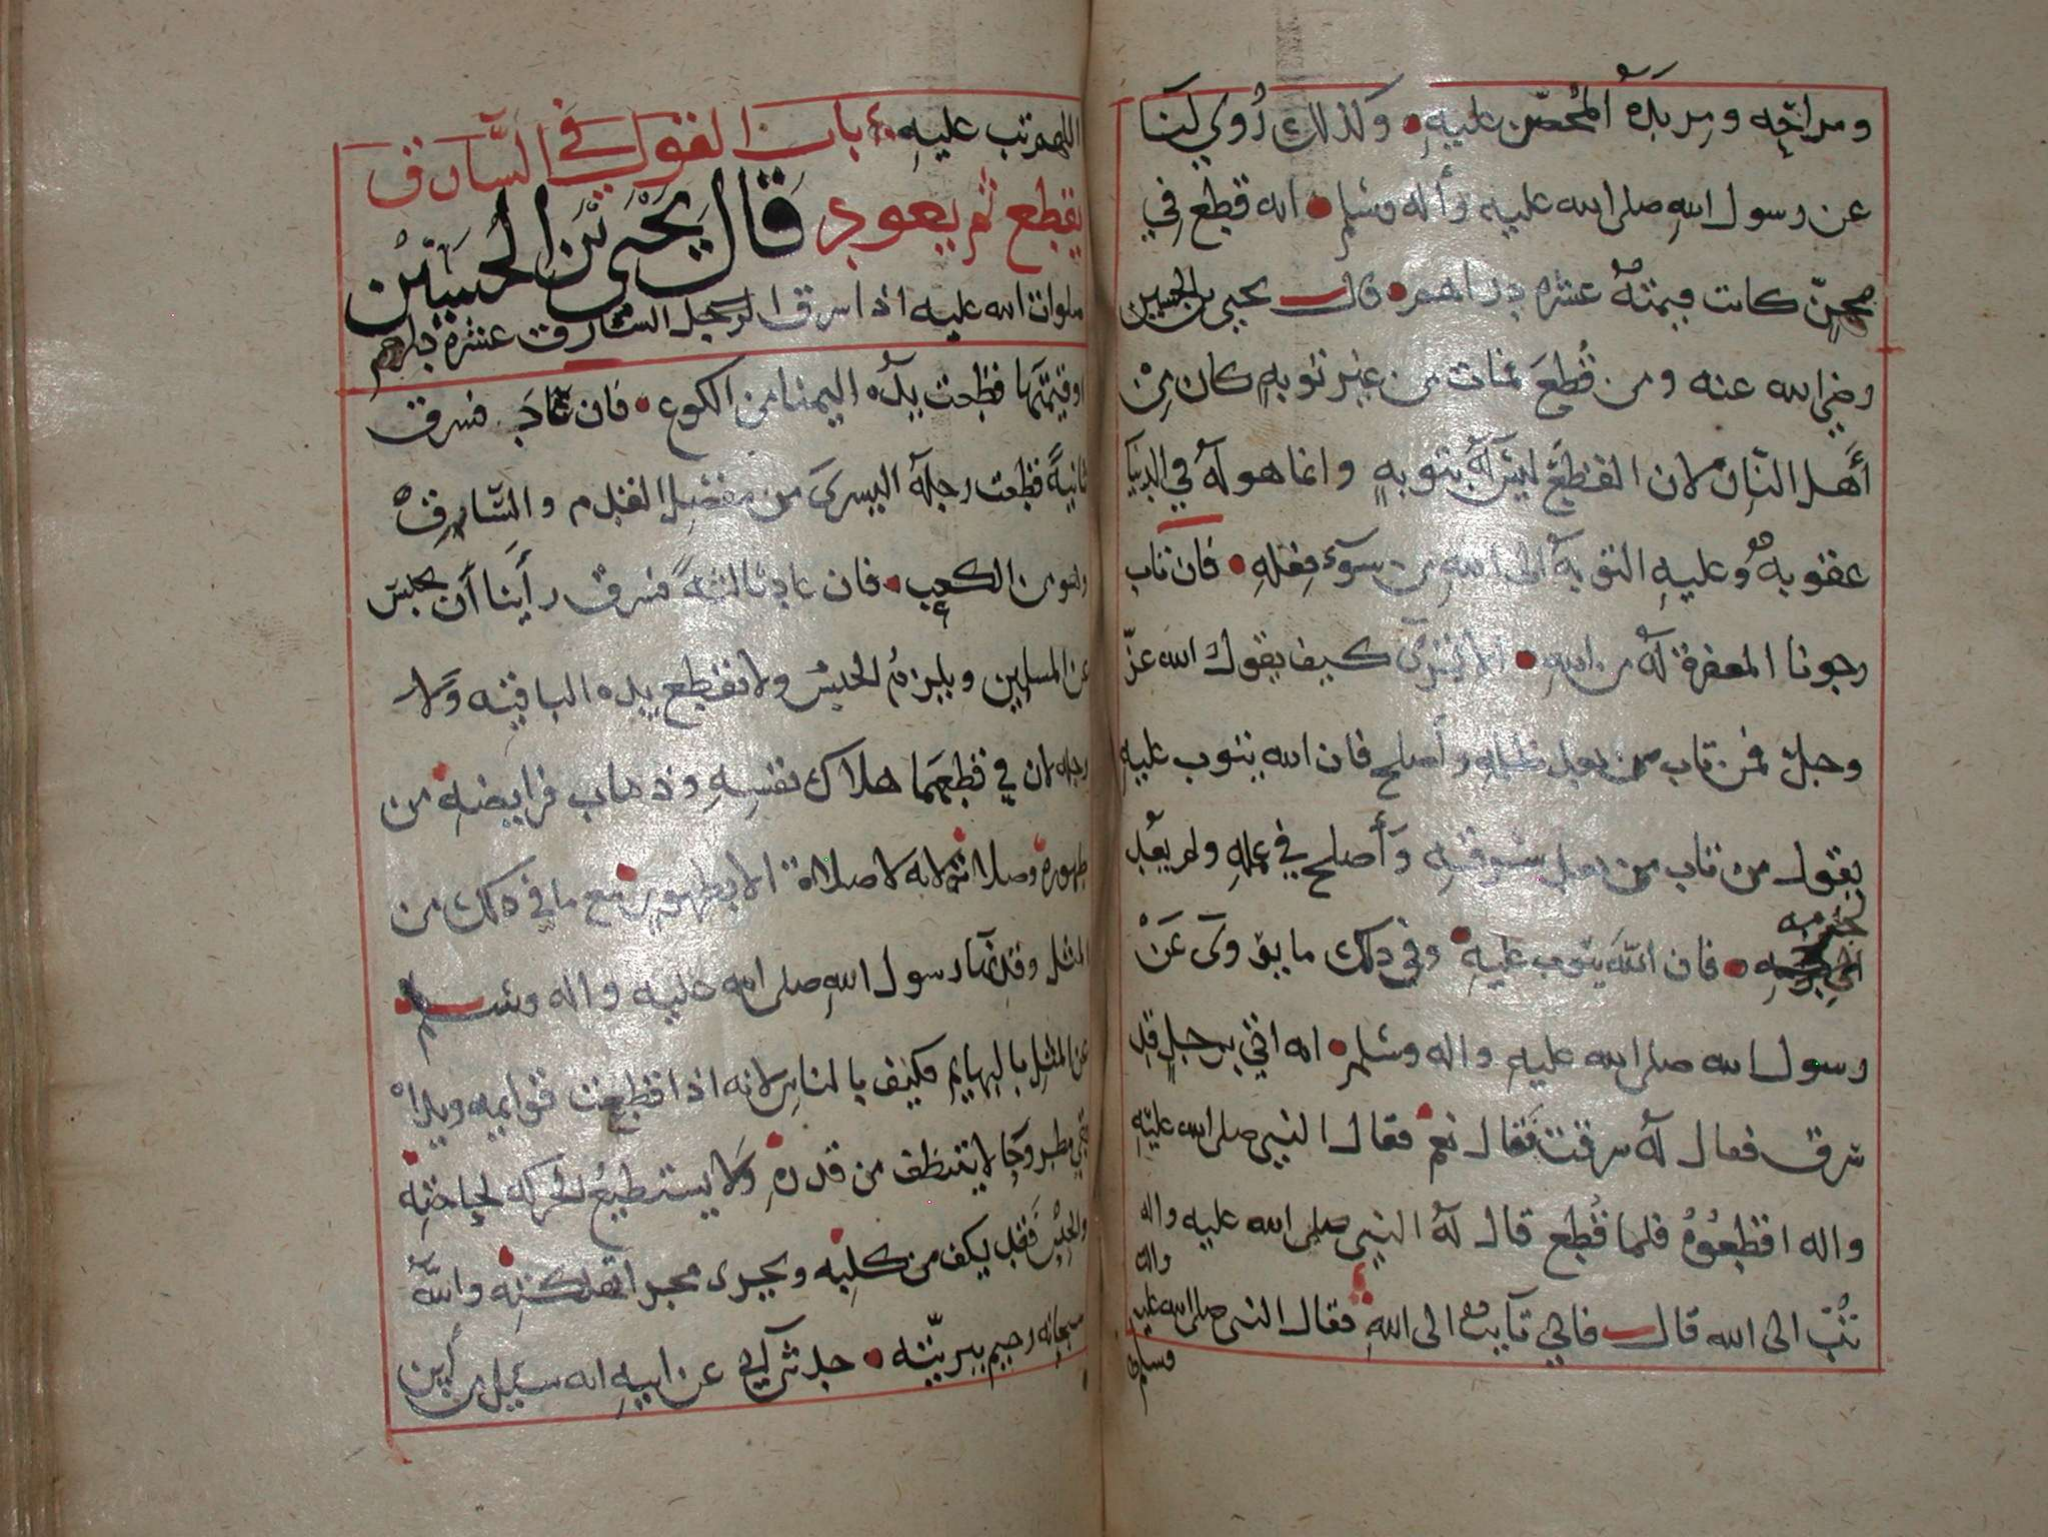 ومراحه ومربده المحصن عليه وكذلك روي لنا
عن رسول الله صلى الله عليه وأله وسلم انه قطع في
مجن كانت قيمته عشرة دراهم قال يحيى بن الحسين
رضي الله عنه ومن قطع فمات من غير توبه كان من
أهل النار لان القطع ليس له بتوبه وانما هو له في الدنيا
عقوبه وعليه التوبه الى الله من سوء فعله فان تاب
رجونا المغفرة له من الله الا ترى كيف يقول الله عز
وجل فمن تاب من بعد ظلمه وأصلح فان الله يتوب عليه
يقول من تاب من بعد سرقته وأصلح في عمله ولم يعد
فان الله يتوب عليه وفي ذلك ما يروى عن
رسول الله صلى الله عليه واله وسلم انه اتي برجل قد
سرق فقال له سرقت فقال نعم فقال النبي صلى الله عليه
واله اقطعوه فلما قطع قال له النبي صلى الله عليه واله
تب الى الله قال فاني تآيب الى الله فقال النبي صلى الله عليه
واله
وسلم
اللهم تب عليه باب القول في السارق
يقطع ثم يعود قال يحيى بن الحسين
صلوات الله عليه اذا سرق الرجل السارق عشرة دراهم
او قيمتها قطعت يده اليمنا من الكوع فان عاد فسرق
ثانية قطعت رجله اليسرى من مفصل القدم والساق
وهو من الكعب فان عاد ثالثة فسرق رأينا أن يحبس
عن المسلمين ويلزم الحبس ولا تقطع يده الباقيه ولا
رجله لان في قطعهما هلاك نفسه وذهاب فرايضه من
طهوره وصلاته لانه لا صلاة الا بطهور مع ما في ذلك من
المثل وقد نهى رسول الله صلى الله عليه واله وسلم
عن المثل بالبهايم فكيف بالناس لانه اذا قطعت قوايمه ويداه
بقي مطروحا لا يتنظف من قذره ولا يستطيع الحركه لحاجته
والحبس فقد يكف من كلبه ويجرى مجرا تهلكته والله
سبحانه رحيم ببريته حدثني ابي عن ابيه انه سيل عن